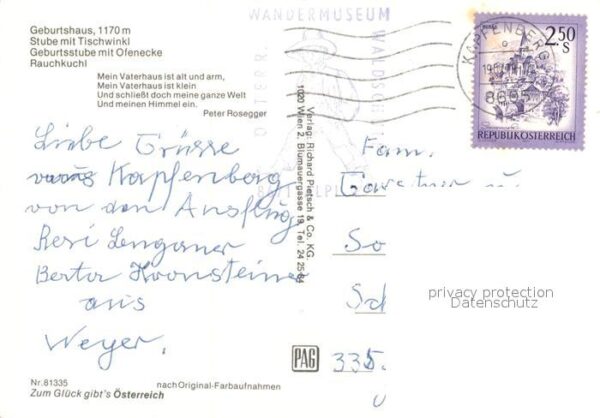 WANDERMUSEUM
WALDSCH
ÖSTERR.
KAPFENBERG
8605
2.50
S
REPUBLIK ÖSTERREICH
Geburtshaus, 1170 m
Stube mit Tischwinkl
Geburtsstube mit Ofenecke
Rauchkuchl
Mein Vaterhaus ist alt und arm,
Mein Vaterhaus ist klein
Und schließt doch meine ganze Welt
Und meinen Himmel ein.
Peter Rosegger
Liebe Grüsse
Kapfenberg
von den Ausflug
Resi
Berta
aus
Weyer.
Verlag: Richard Pietsch & Co. KG
1020 Wien 2, Blumauergasse 19, Tel. 24 25 64
Fam.
So
Sd
335.
privacy protection
Datenschutz
PAG
Nr. 81335
nach Original-Farbaufnahmen
Zum Glück gibt's Österreich